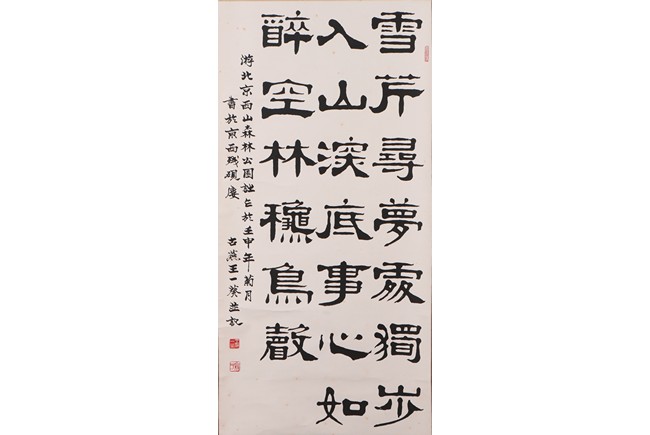 雪芹尋夢處獨步
入山深底事心如
醉空林穐鳥聲
游北京西山森林公园於壬申年菊月
書於京西殘硯廔 古燕王一葵並記